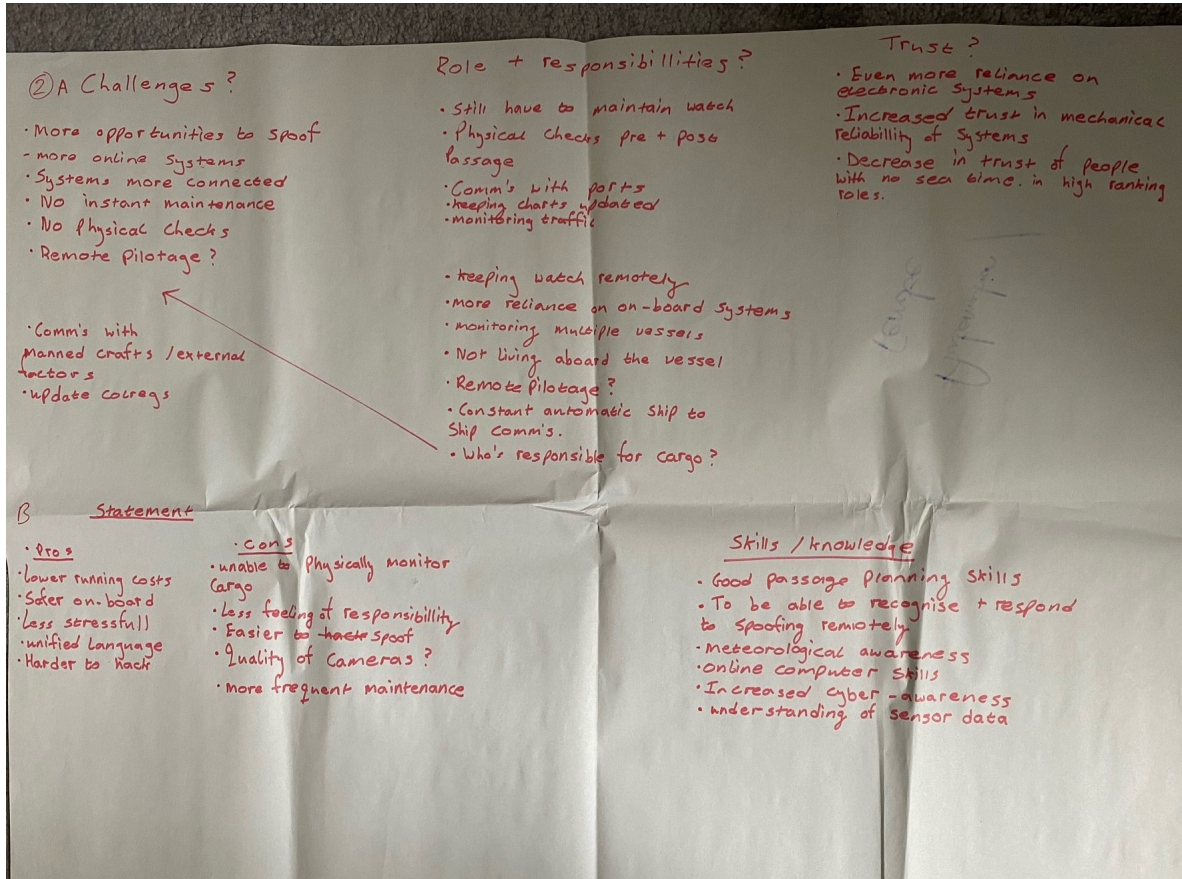 ② A Challenges?
· More opportunities to spoof
- more online systems
· Systems more connected
· No instant maintenance
· No Physical Checks
· Remote Pilotage?
· Comm's with
manned crafts / external
factors
· update colregs
Role + responsibillities?
· Still have to maintain watch
· Physical Checks pre + post
Passage
· Comm's with ports
· keeping charts updated
· monitoring traffic
· keeping watch remotely
· more reliance on on-board systems
· monitoring multiple vessels
· Not living aboard the vessel
· Remote Pilotage?
· Constant automatic ship to
Ship Comm's.
· Who's responsible for cargo?
Trust?
· Even more reliance on
electronic systems
· Increased trust in mechanical
reliabillity of systems
· Decrease in trust of people
with no sea time. in high ranking
roles.
B Statement
· Pros
· lower running costs
· Safer on-board
· Less stressfull
· unified language
· Harder to hack
· Cons
· unable to Physically monitor
Cargo
· Less feeling of responsibillity
· Easier to hack spoof
· Quality of Cameras?
· more frequent maintenance
Skills / knowledge
· Good passage planning skills
· To be able to recognise + respond
to spoofing remotely
· meteorological awareness
· online computer skills
· Increased cyber-awareness
· understanding of sensor data